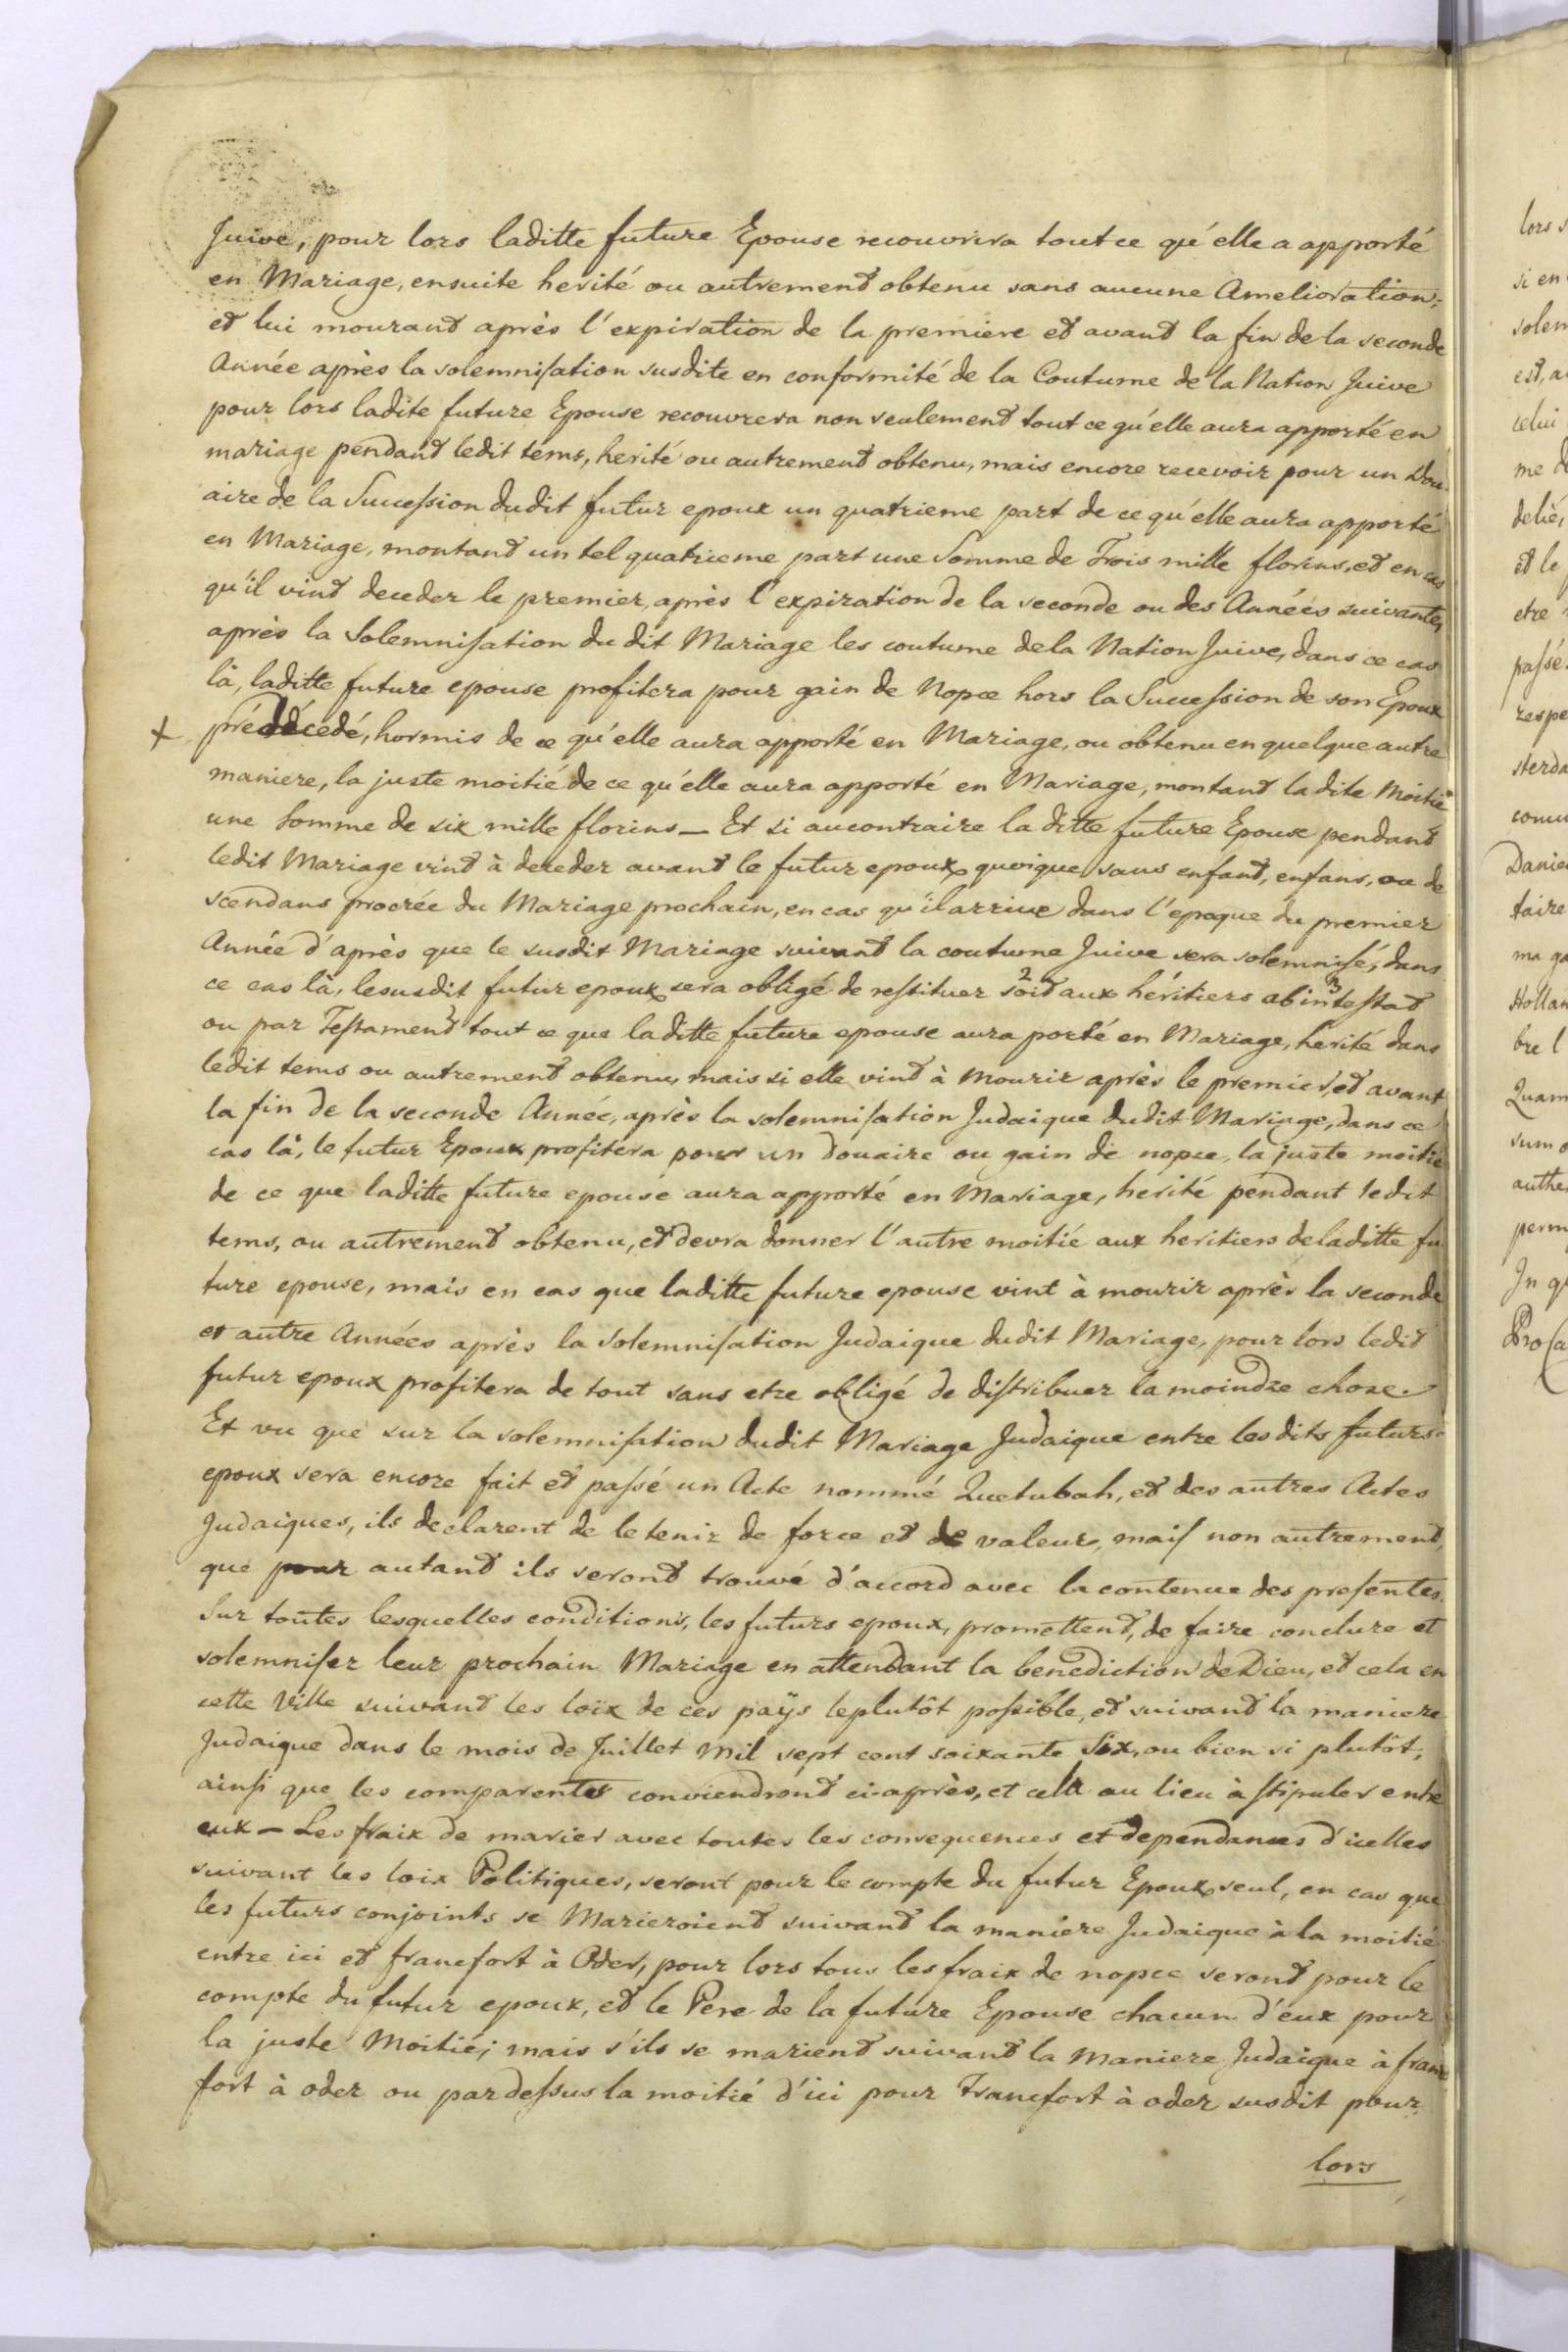 Juive, pour lors laditte future Epouse recouvrira tout ce qu'elle a apporté
en Mariage, ensuite herité ou autrement obtenu sans aucune Amelioration;
et lui mourant après l'expiration de la premiere et avant la fin de la seconde
Année après la solemnisation susdite en conformité de la Coutume de la Nation Juive
pour lors ladite future Epouse recouvrera non seulement tout ce qu'elle aura apporté en
mariage pendant ledit tems, herité ou autrement obtenu, mais encore recevoir pour un Dou-
aire de la Succession dudit futur epoux un quatrieme part de ce qu'elle aura apporté
en Mariage, montant un tel quatrieme part une Somme de Trois mille florins, et en cas
qu'il vint deceder le premier, après l'expiration de la seconde ou des Années suivantes
après la Solemnisation du dit Mariage les coutume de la Nation Juive, dans ce cas
là, laditte future epouse profitera pour gain de Nopce hors la Succession de son Epoux
+ prédécedé, hormis de ce qu'elle aura apporté en Mariage, ou obtenu en quelque autre
maniere, la juste moitié de ce qu'elle aura apporté en Mariage, montant la dite Moitié
une Somme de six mille florins — Et si au contraire la ditte future Epouse pendant
ledit Mariage vint à deceder avant le futur epoux, quoique sans enfant, enfans, ou de
scendans procrée du Mariage prochain, en cas qu'il arrive dans l'epoque du premier
Année d'après que le susdit Mariage suivant la coutume Juive sera solemnisé, dans
ce cas là, lesusdit futur epoux sera obligé de restituer 2 soit aux héritiers ab in 3 testat
ou par Testament 1 tout ce que laditte future epouse aura porté en Mariage, herité dans
ledit tems ou autrement obtenu, mais si elle vint à Mourir après le premier, et avant
la fin de la seconde Année, après la solemnisation Judaique dudit Mariage, dans ce
cas là, le futur Epoux profitera pour un douaire ou gain de nopce, la juste moitié
de ce que laditte future epouse aura apporté en Mariage, herité pendant ledit
tems, ou autrement obtenu, et devra donner l'autre moitié aux heritiers de laditte fu-
ture epouse, mais en cas que laditte future epouse vint à mourir après la seconde
et autre Années après la Solemnisation Judaique dudit Mariage, pour lors ledit
futur epoux profitera de tout sans etre obligé de distribuer la moindre chose.
Et vu que sur la solemnisation dudit Mariage Judaique entre lesdits futurs
epoux sera encore fait et passé un Acte nommé Quetubah, et des autres Actes
Judaiques, ils declarent de le tenir de force et de valeur, mais non autrement,
que pour autant ils seront trouvé d'accord avec la contenue des presentes.
Sur toutes lesquelles conditions, les futurs epoux, promettent, de faire conclure et
solemniser leur prochain Mariage en attendant la benediction de Dieu, et cela en
cette Ville suivant les loix de ces paÿs leplutôt possible, et suivant la maniere
Judaique dans le mois de Juillet Mil sept cent soixante Six, ou bien si plutôt,
ainsi que les comparentes conviendront ci-après, et cela au lieu à stipuler entre
eux — Les fraix de marier avec toutes les consequences et dependances d'icelles
suivant les loix Politiques, seront pour le compte du futur Epoux seul, en cas que
les futurs conjoints se Marieroient suivant la maniere Judaique à la moitié
entre ici et francfort à Oder, pour lors tous les fraix de nopce seront pour le
compte du futur epoux, et le Pere de la future Epouse chacun d'eux pour
la juste Moitié; mais s'ils se marient suivant la Maniere Judaique à franc
fort à oder ou par dessus la moitié d'ici pour Francfort à oder susdit pour
lors
lors
si en
solem
est, a
celui
me d
delié,
et le
etre
passé
respe
sterda
comu
Danie
taire
ma ga
Hollan
bre l
Quam
sum
authe
perm
In q